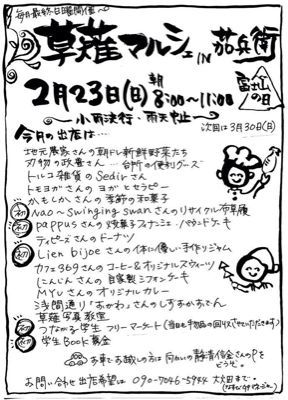 毎月最終日曜開催〜
草薙マルシェ IN 茄兵衛
2月23日(日) 朝8:00〜11:00
富士山の日
〜小雨決行・雨天中止〜
次回は3月30日(日)
今月の出店は…
地元農家さんの朝ドレ新鮮野菜たち
刃物の政豊さん…台所の便利グッズ
トルコ雑貨のSedirさん
トモヨガさんのヨガとセラピー
かもしかさんの季節の和菓子
初 Nao〜Swinging swanさんのリサイクル布草履
初 pappusさんの焼菓子スナッシュ・パウンドケーキ
ティピーズさんのドーナツ
初 Lien bijoeさんの体に優しい手作りジャム
カフェ369さんのコーヒー&オリジナルスウィーツ
にんじんさんの自家製シフォンケーキ
MYUさんのオリジナルカレー
浅間通り「おがわ」さんのしずおかおでん
草薙写真教室
初 つながる学生フリーマーケット(当日も不用品の回収させていただきます)
初 学生Book募金
お車でお越しの方は向かいの静清信金さんのPをどうぞ。
お問い合わせ出店希望は 090-7046-5944 大田まで。